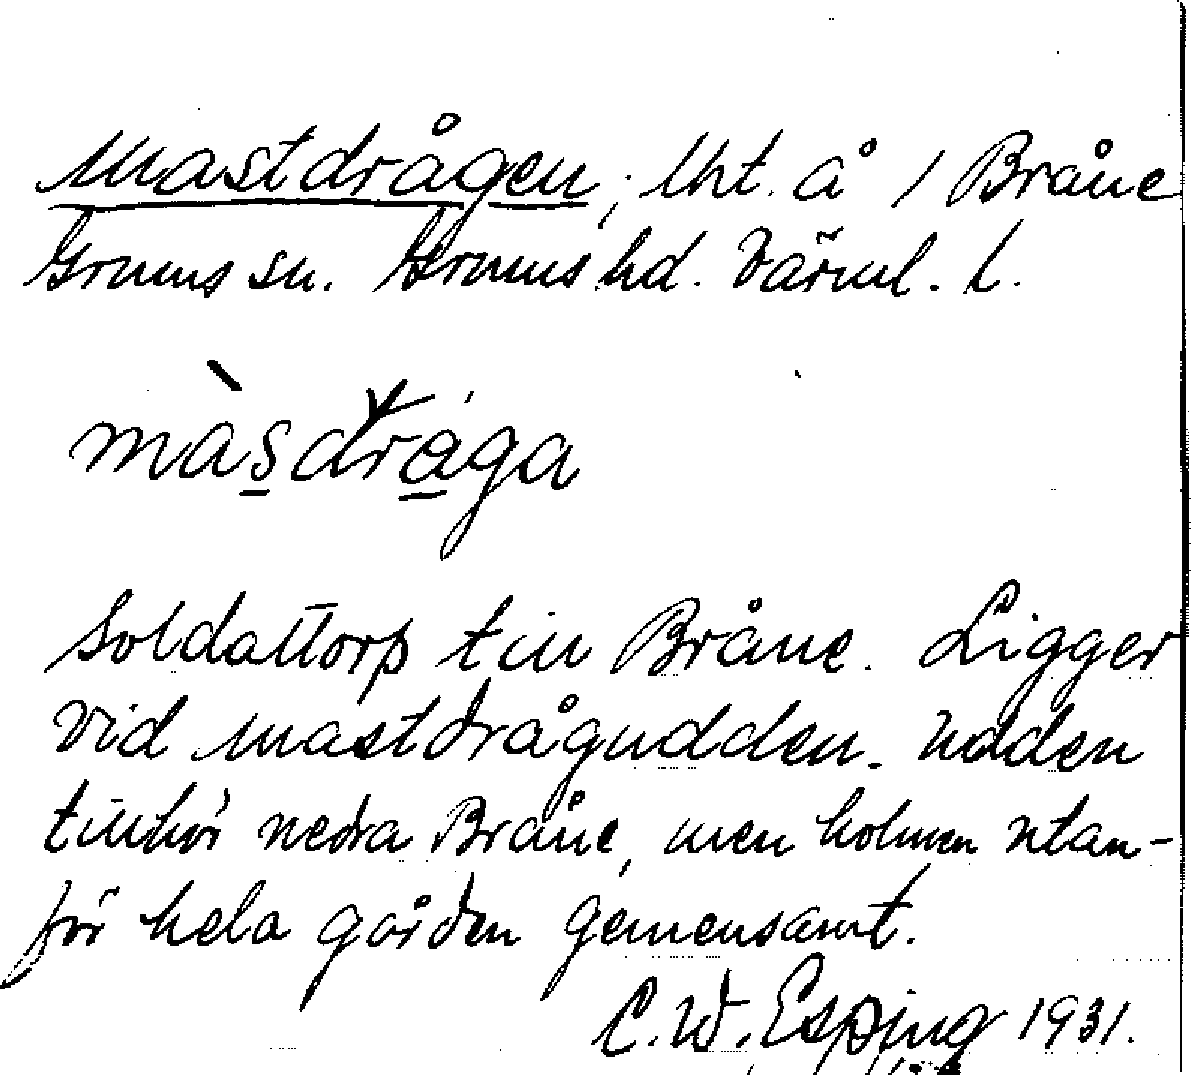 Mastdrågen, lht. å 1 Bråne
Grums sn. Grums hd. Värml. l.
màsdråga
Soldattorp till Bråne. Ligger
vid Mastdrågudden. Udden
tillhör nedra Bråne, men holmen utan-
för hela gården gemensamt.
C. W. Esping 1931.